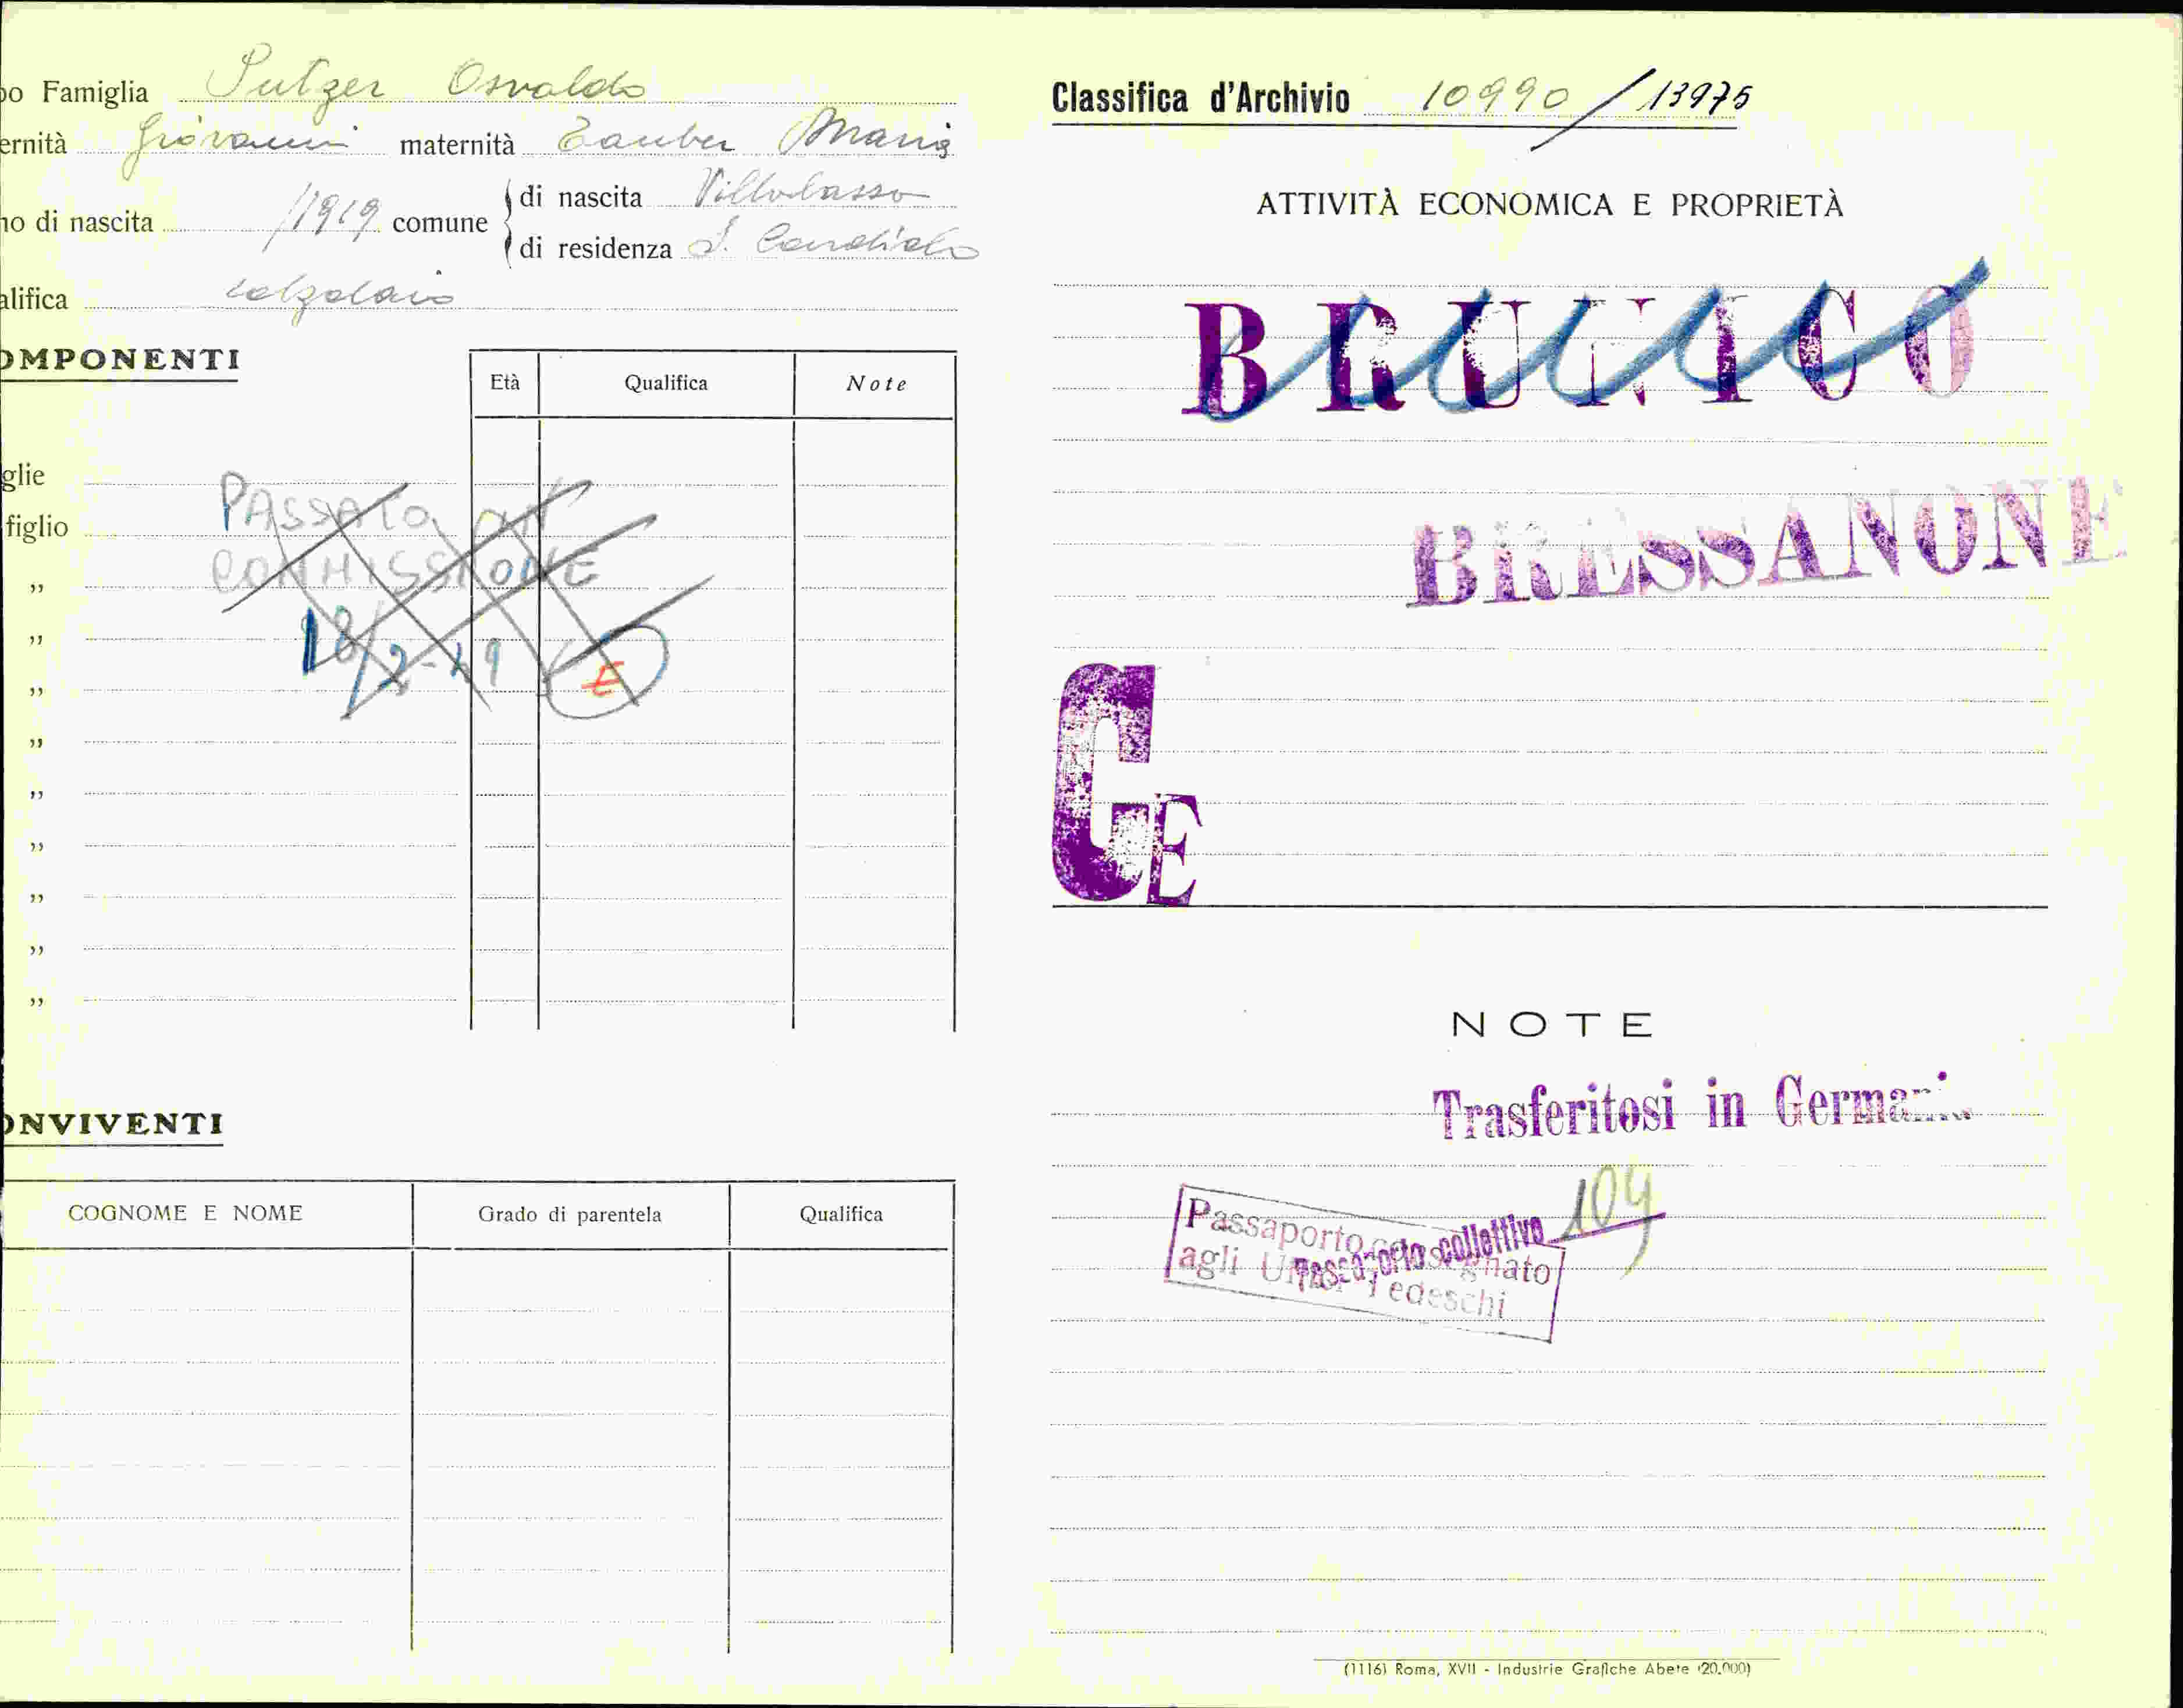 po Famiglia Sulzer Osvaldo
ernità Giovanni maternità Tauber Maria
no di nascita /1919 comune di nascita Villabassa
di residenza S. Candido
alifica calzolaio
OMPONENTI
Età Qualifica Note
glie
figlio
PASSATO
COMMISSIONE
18/2-49 E
"
"
"
"
"
"
"
"
"
ONVIVENTI
COGNOME E NOME Grado di parentela Qualifica
Classifica d'Archivio 10990/13975
ATTIVITÀ ECONOMICA E PROPRIETÀ
BRUNICO
BRESSANONE
CE
NOTE
Trasferitosi in Germania
104
Passaporto consegnato
Passaporto collettivo
agli Uffici Tedeschi
(1116) Roma, XVII - Industrie Grafiche Abete (20.000)